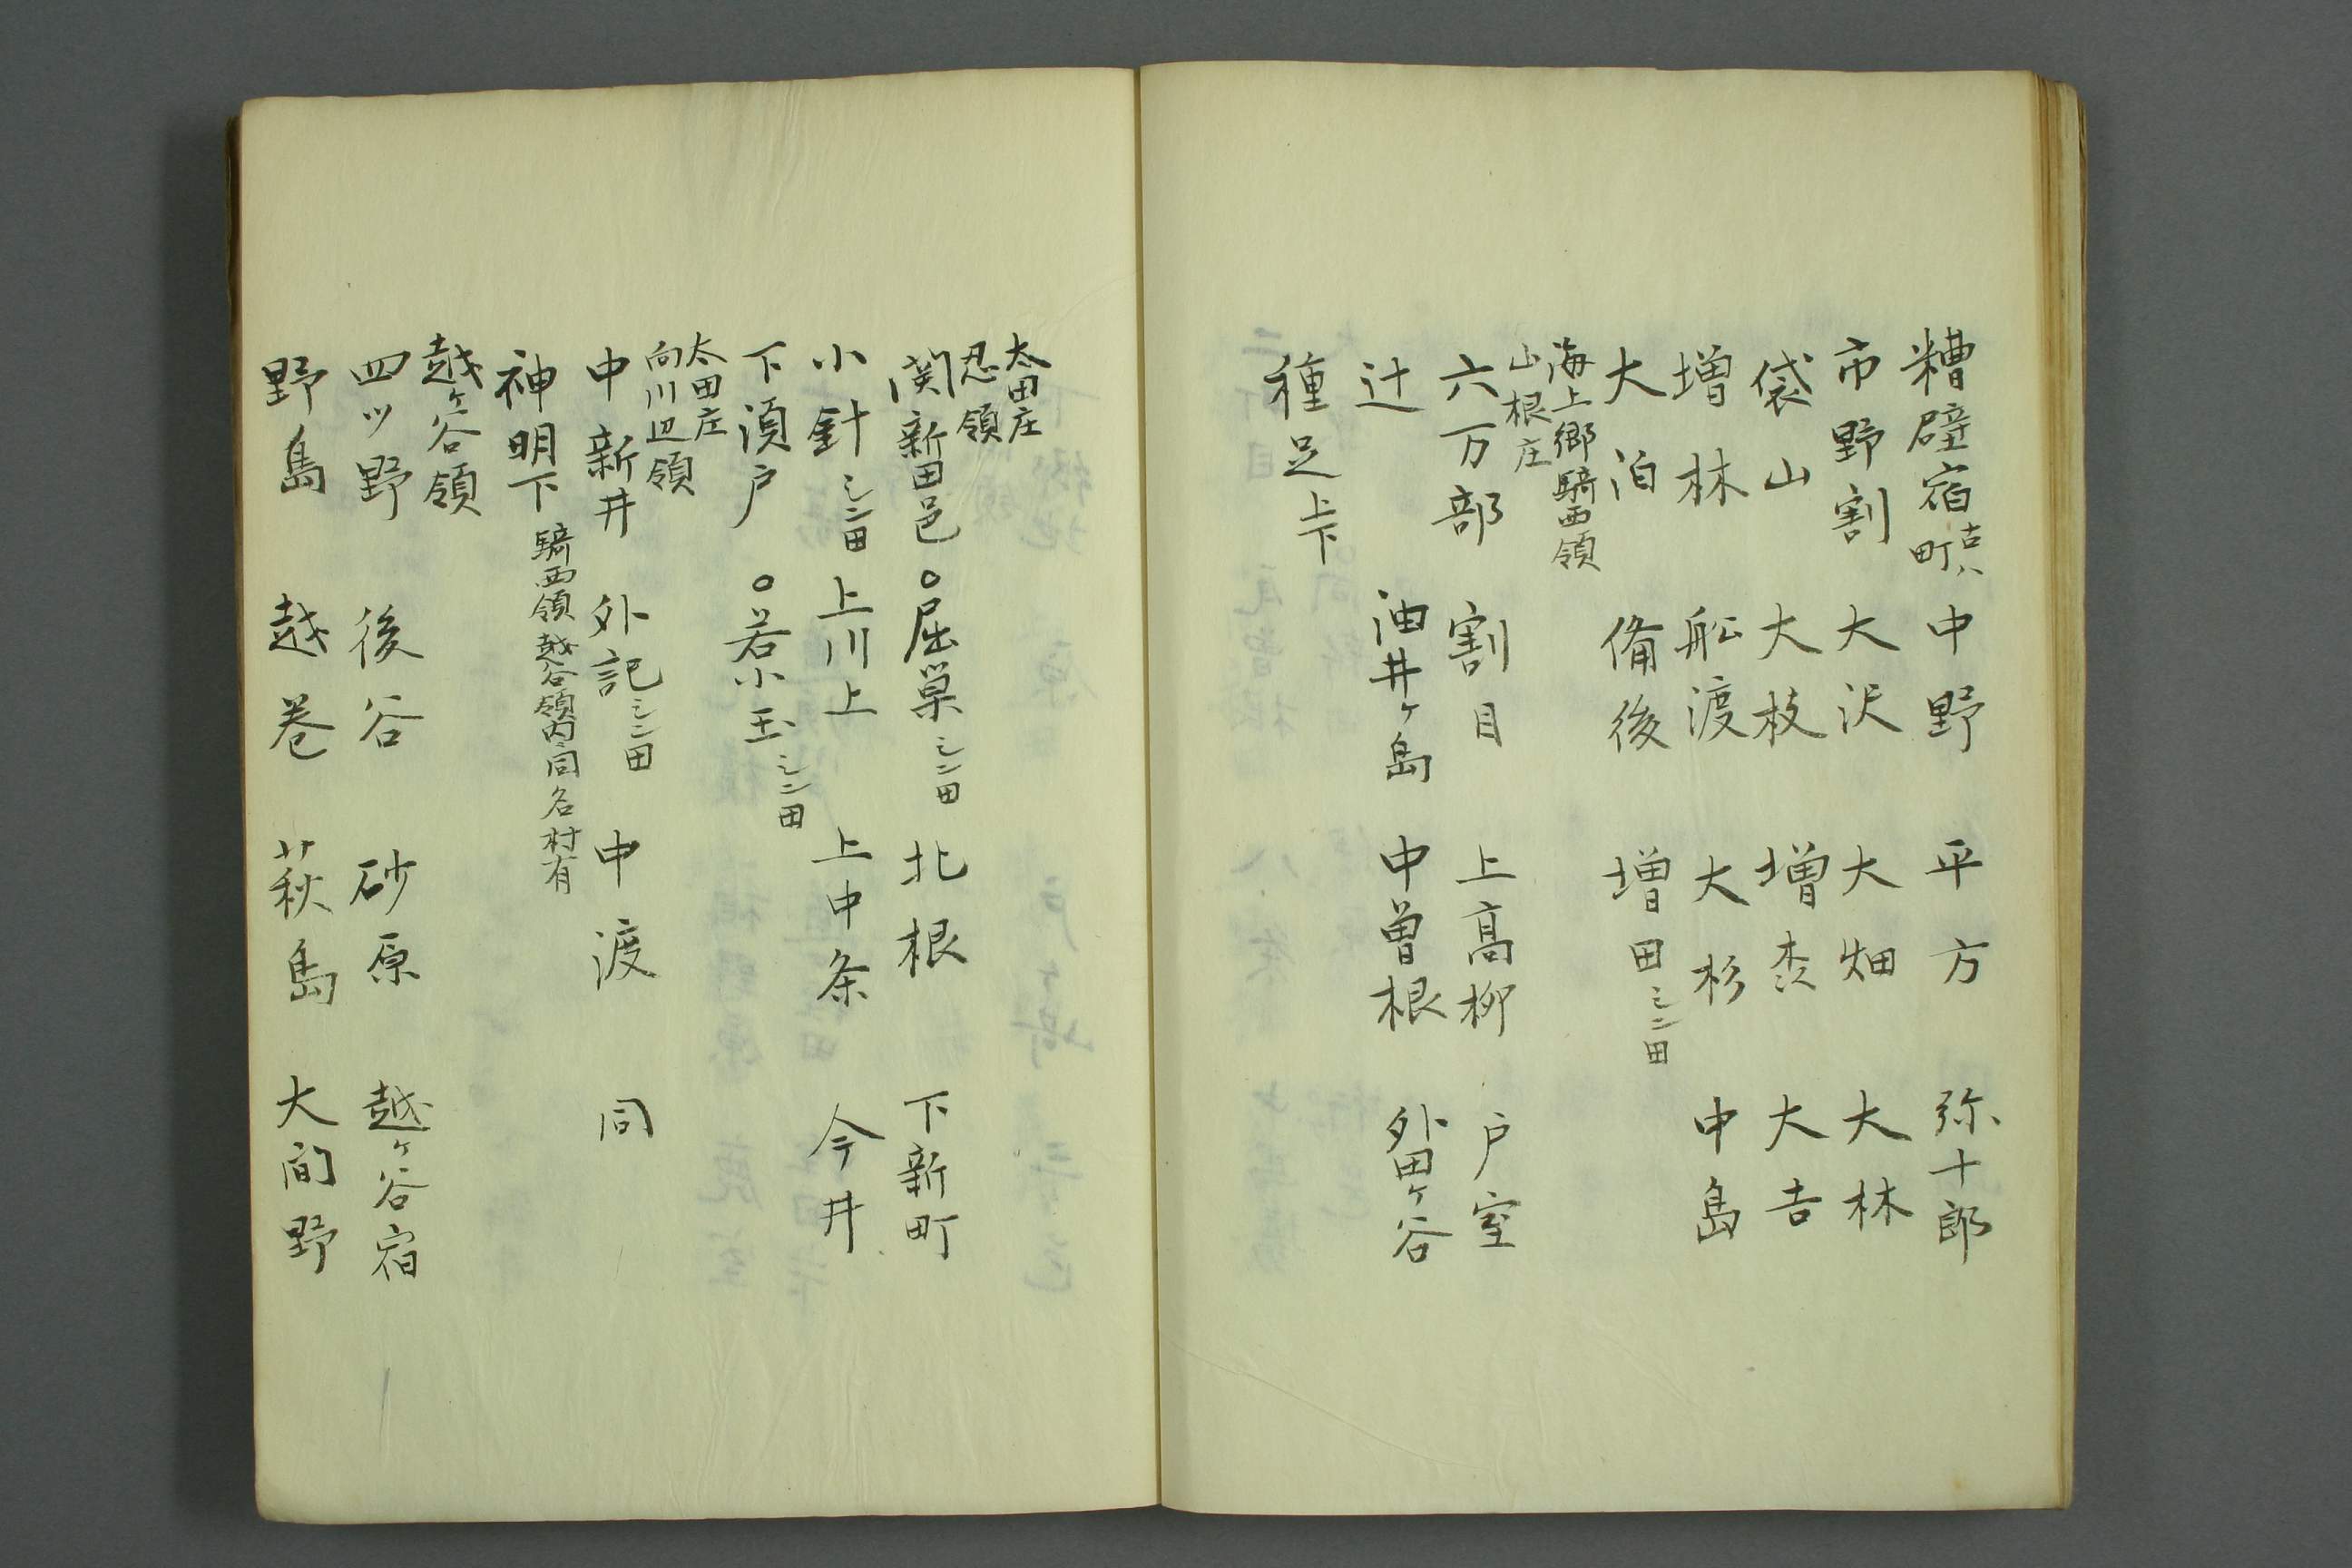 糟壁宿 古ハ町 中野 平方 弥十郎
市野割 大沢 大畑 大林
袋山 大枝 増森 大吉
増林 舩渡 大杉 中島
大泊 備後 増田シン田
海上郷騎西領
山根庄
六万部 割目 上高柳 戸室
辻 油井ヶ島 中曽根 外田ヶ谷
種足上下
太田庄
忍領
関新田邑 〇屈巣シン田 北根 下新町
小針シン田 上川上 上中条 今井
下須戸 〇若小玉シン田
太田庄
向川辺領
中新井 外記シン田 中渡 同
神明下 騎西領越谷領内同名村有
越ヶ谷領
四ッ野 後谷 砂原 越ヶ谷宿
野島 越巻 萩島 大間野